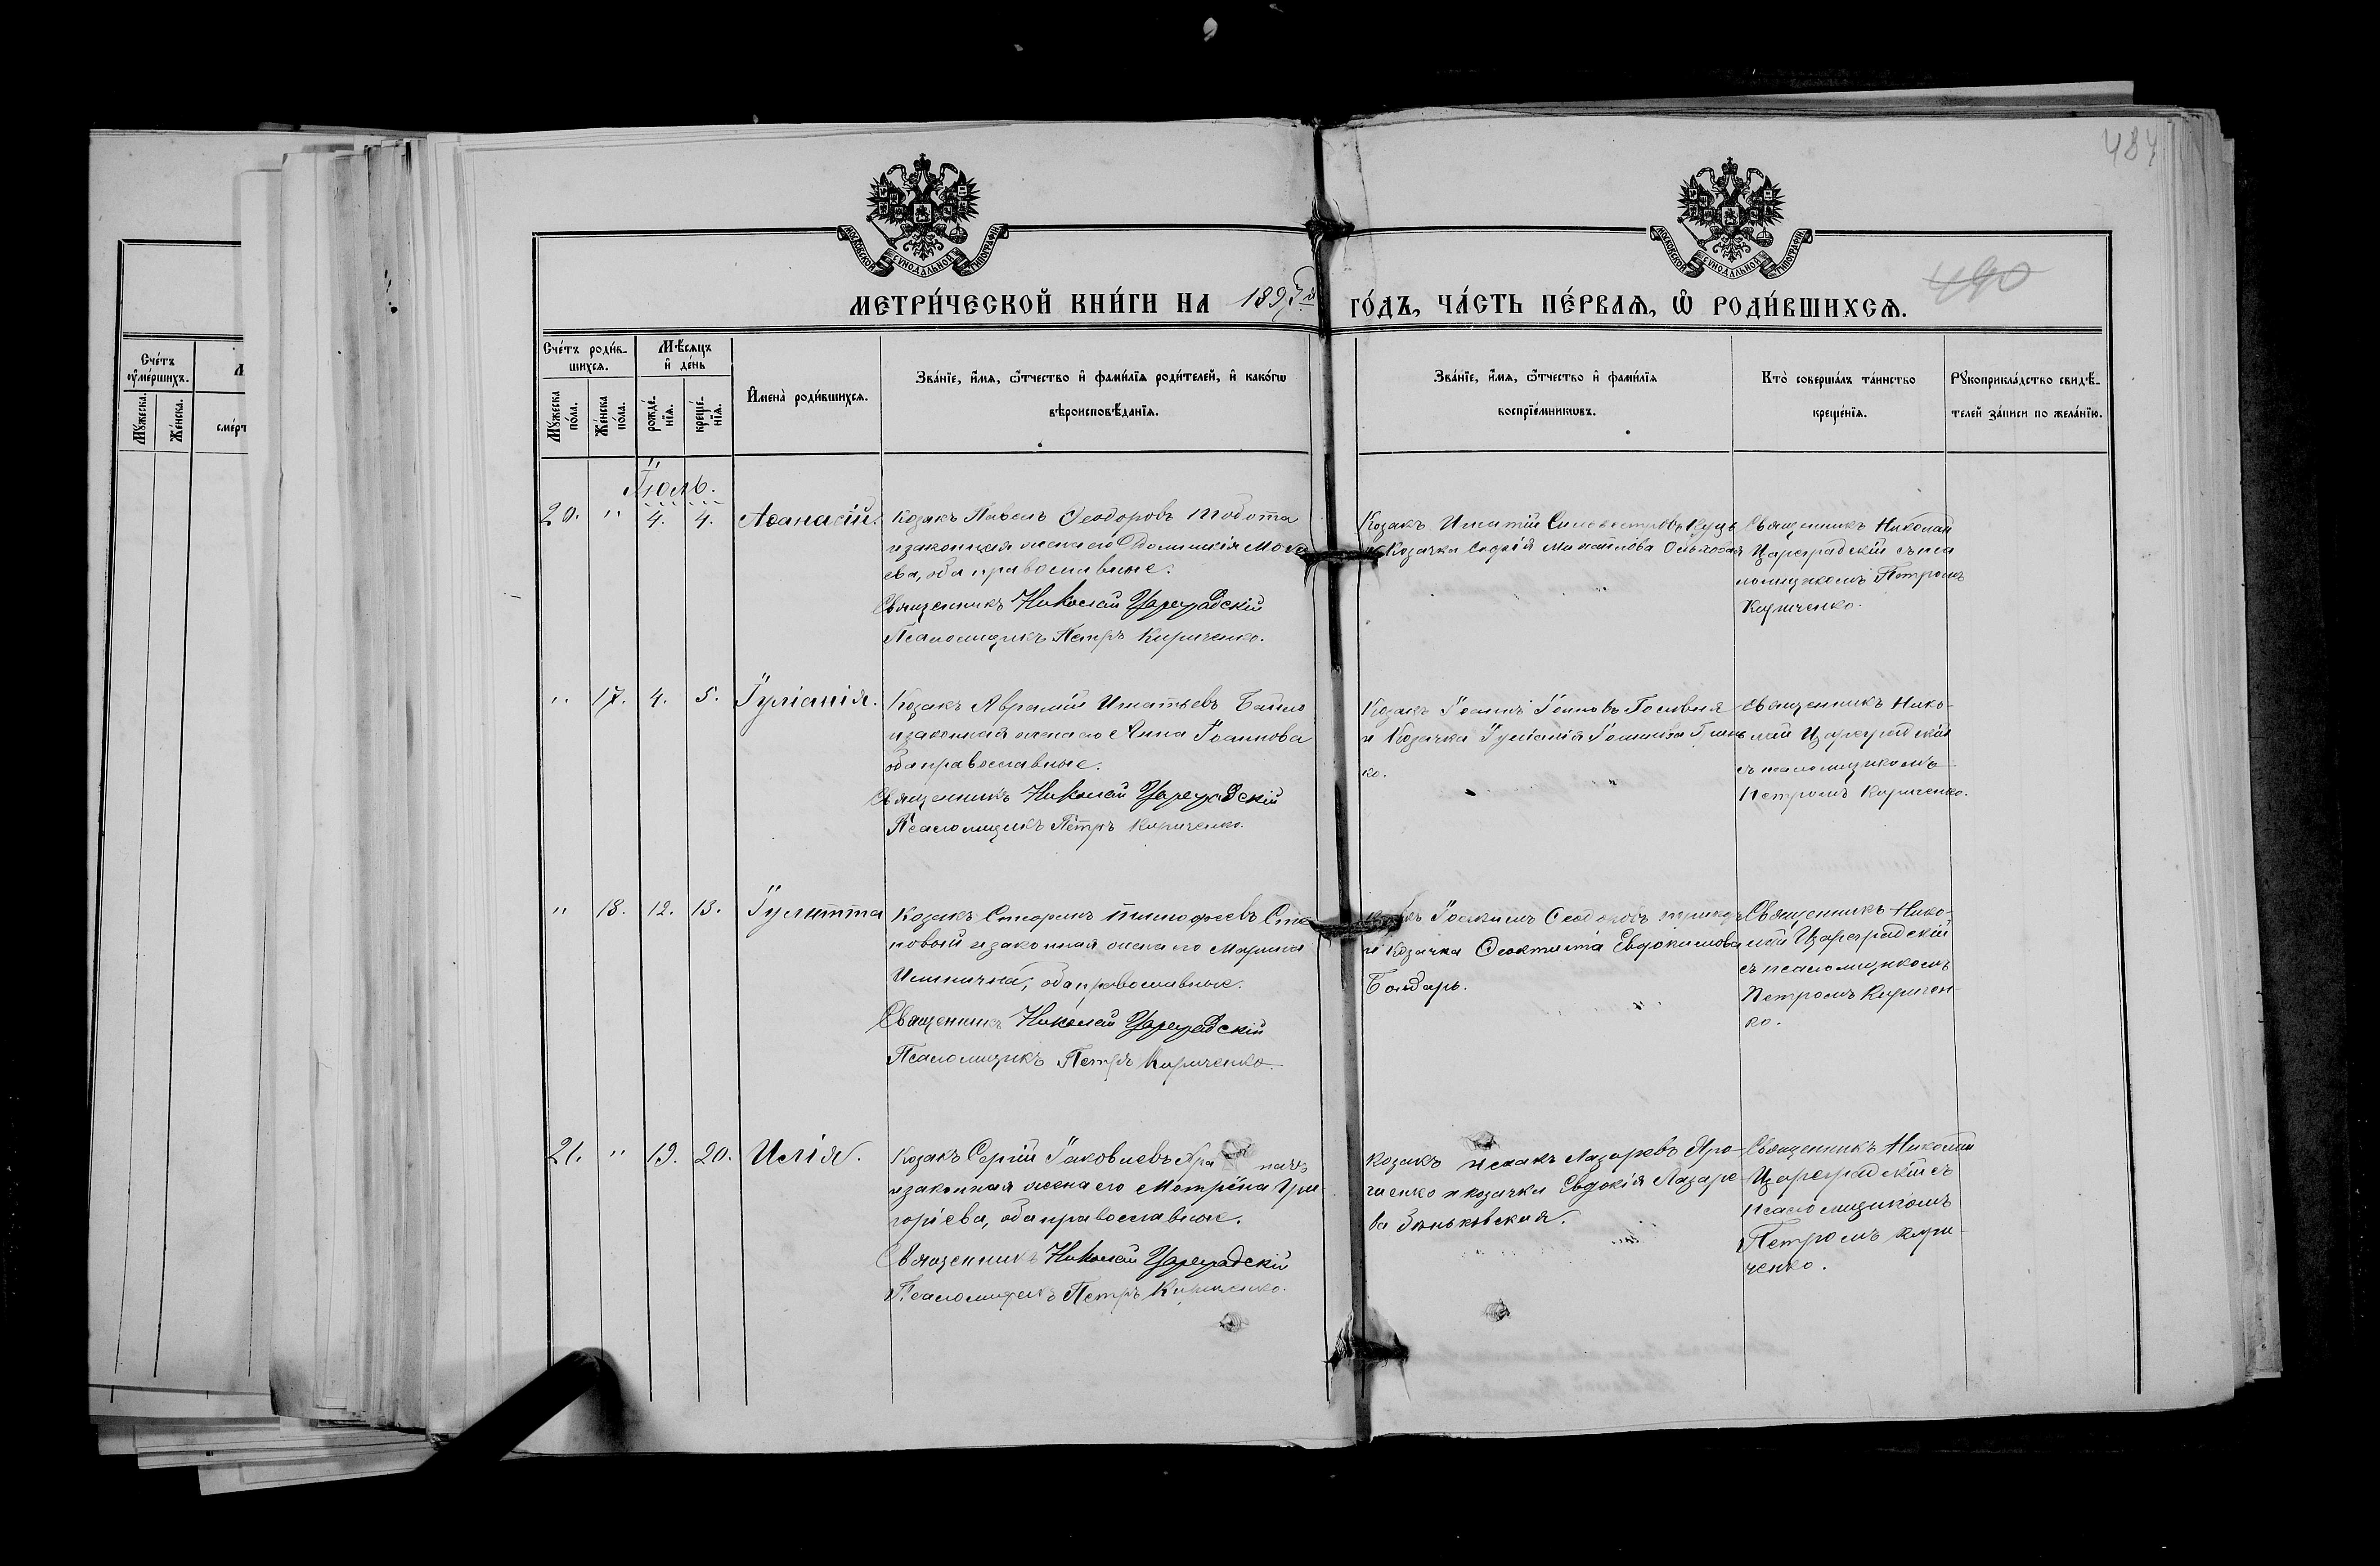 484
490
МОСКОВСКОЙ СѴНОДАЛЬНОЙ ТИПОГРАФІИ
МОСКОВСКОЙ СѴНОДАЛЬНОЙ ТИПОГРАФІИ
МЕТРИ́ЧЕСКОЙ КНИ́ГИ НА 1897й ГО́ДЪ, ЧА́СТЬ ПЕ́РВАѦ, Ѿ РОДИ́ВШИХСѦ.
Сче́тъ оу҆ме́ршихъ.
Мꙋ́жеска.
Же́нска.
Сче́тъ роди́в-
шихсѧ.
Мѣ́сѧцъ
и҆ де́нь
Мꙋ́жеска по́ла.
Же́нска по́ла.
рожде́-нїѧ.
креще́-нїѧ.
И҆мена̀ роди́вшихсѧ.
Зва́нїе, и҆́мѧ, ѻ҆́тчество и҆ фами́лїѧ роди́телей, и҆ како́гѡ
вѣроисповѣ́данїѧ.
Зва́нїе, и҆́мѧ, ѻ҆́тчество и҆ фами́лїѧ
воспрїе́мникѡвъ.
Кто̀ соверша́лъ та́инство
креще́нїѧ.
Рꙋкоприкла́дство свидѣ́-
телей за́писи по жела́нїю.
Іюль.
20. " 4. 4. Аѳанасій.
Козакъ Павелъ Ѳеодоровъ Тодота
и законная жена его Домникія Мока
ева, оба православные.
Священникъ Николай Цареградскій
Псаломщикъ Петръ Кириченко.
Козакъ Игнатій Силовестровъ Куцъ
и Козачка Софія Михайлова
Священникъ Николай
Цареградскій съ пса
ломщикомъ Петромъ
Кириченко.
" 17. 4. 5. Іуліанія.
Козакъ Аврамій Игнатьевъ Байло
и законная жена его Анна Іоаннова
оба православные.
Священникъ Николай Цареградскій
Псаломщикъ Петръ Кириченко.
Козакъ Іоаннъ Іоановъ Головня
и Козачка Іуліанія Іоаннова
ко.
Священникъ Нико-
лай Цареградскій
съ псаломщикомъ
Петромъ Кириченко.
" 18. 12. 13. Іулитта
Козакъ Стефанъ Тимофеевъ Сте
повый и законная жена его Марина
Ильинична, оба православные.
Священникъ Николай Цареградскій
Псаломщикъ Петръ Кириченко.
Іоакимъ Ѳеодоровъ
и Козачка Ѳеоктиста Евдокимова
Бондарь.
Священникъ Нико-
лай Цареградскій
съ псаломщикомъ
Петромъ Киричен-
ко.
21. " 19. 20. Илія.
Козакъ Сергій Іаковлевъ
и законная жена его Матрёна Гри-
горіева, оба православные.
Священникъ Николай Цареградскій
Псаломщикъ Петръ Кириченко.
Козакъ Исаакъ Лазаревъ Яро-
шенко и козачка Евдокія Лазаре-
ва Зѣньковская.
Священникъ Николай
Цареградскій съ
псаломщикомъ
Петромъ Кири-
ченко.